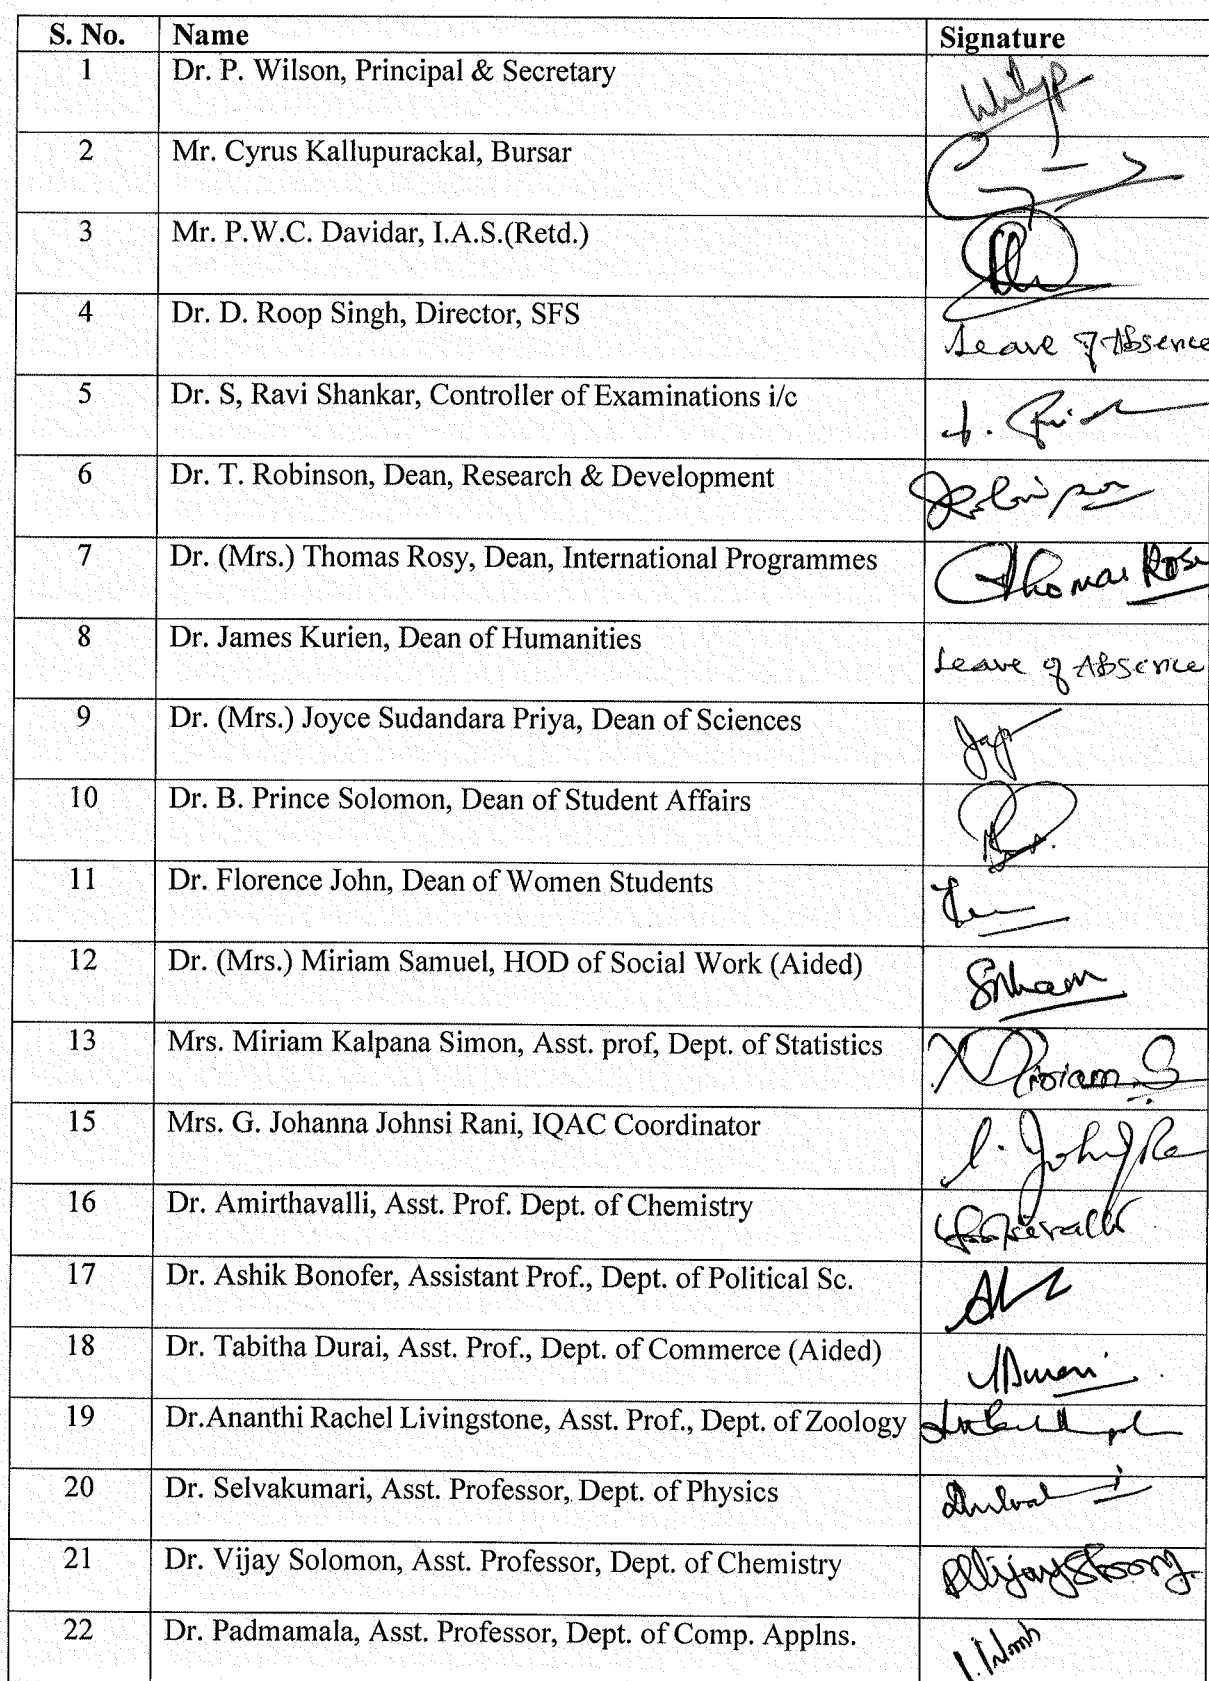 S. No. Name Signature
1 Dr. P. Wilson, Principal & Secretary
2 Mr. Cyrus Kallupurackal, Bursar
3 Mr. P.W.C. Davidar, I.A.S.(Retd.)
4 Dr. D. Roop Singh, Director, SFS Leave of Absence
5 Dr. S, Ravi Shankar, Controller of Examinations i/c
6 Dr. T. Robinson, Dean, Research & Development
7 Dr. (Mrs.) Thomas Rosy, Dean, International Programmes Thomas Rosy
8 Dr. James Kurien, Dean of Humanities Leave of Absence
9 Dr. (Mrs.) Joyce Sudandara Priya, Dean of Sciences
10 Dr. B. Prince Solomon, Dean of Student Affairs
11 Dr. Florence John, Dean of Women Students
12 Dr. (Mrs.) Miriam Samuel, HOD of Social Work (Aided)
13 Mrs. Miriam Kalpana Simon, Asst. prof, Dept. of Statistics Miriam S
15 Mrs. G. Johanna Johnsi Rani, IQAC Coordinator
16 Dr. Amirthavalli, Asst. Prof. Dept. of Chemistry
17 Dr. Ashik Bonofer, Assistant Prof., Dept. of Political Sc.
18 Dr. Tabitha Durai, Asst. Prof., Dept. of Commerce (Aided)
19 Dr.Ananthi Rachel Livingstone, Asst. Prof., Dept. of Zoology
20 Dr. Selvakumari, Asst. Professor, Dept. of Physics
21 Dr. Vijay Solomon, Asst. Professor, Dept. of Chemistry
22 Dr. Padmamala, Asst. Professor, Dept. of Comp. Applns.